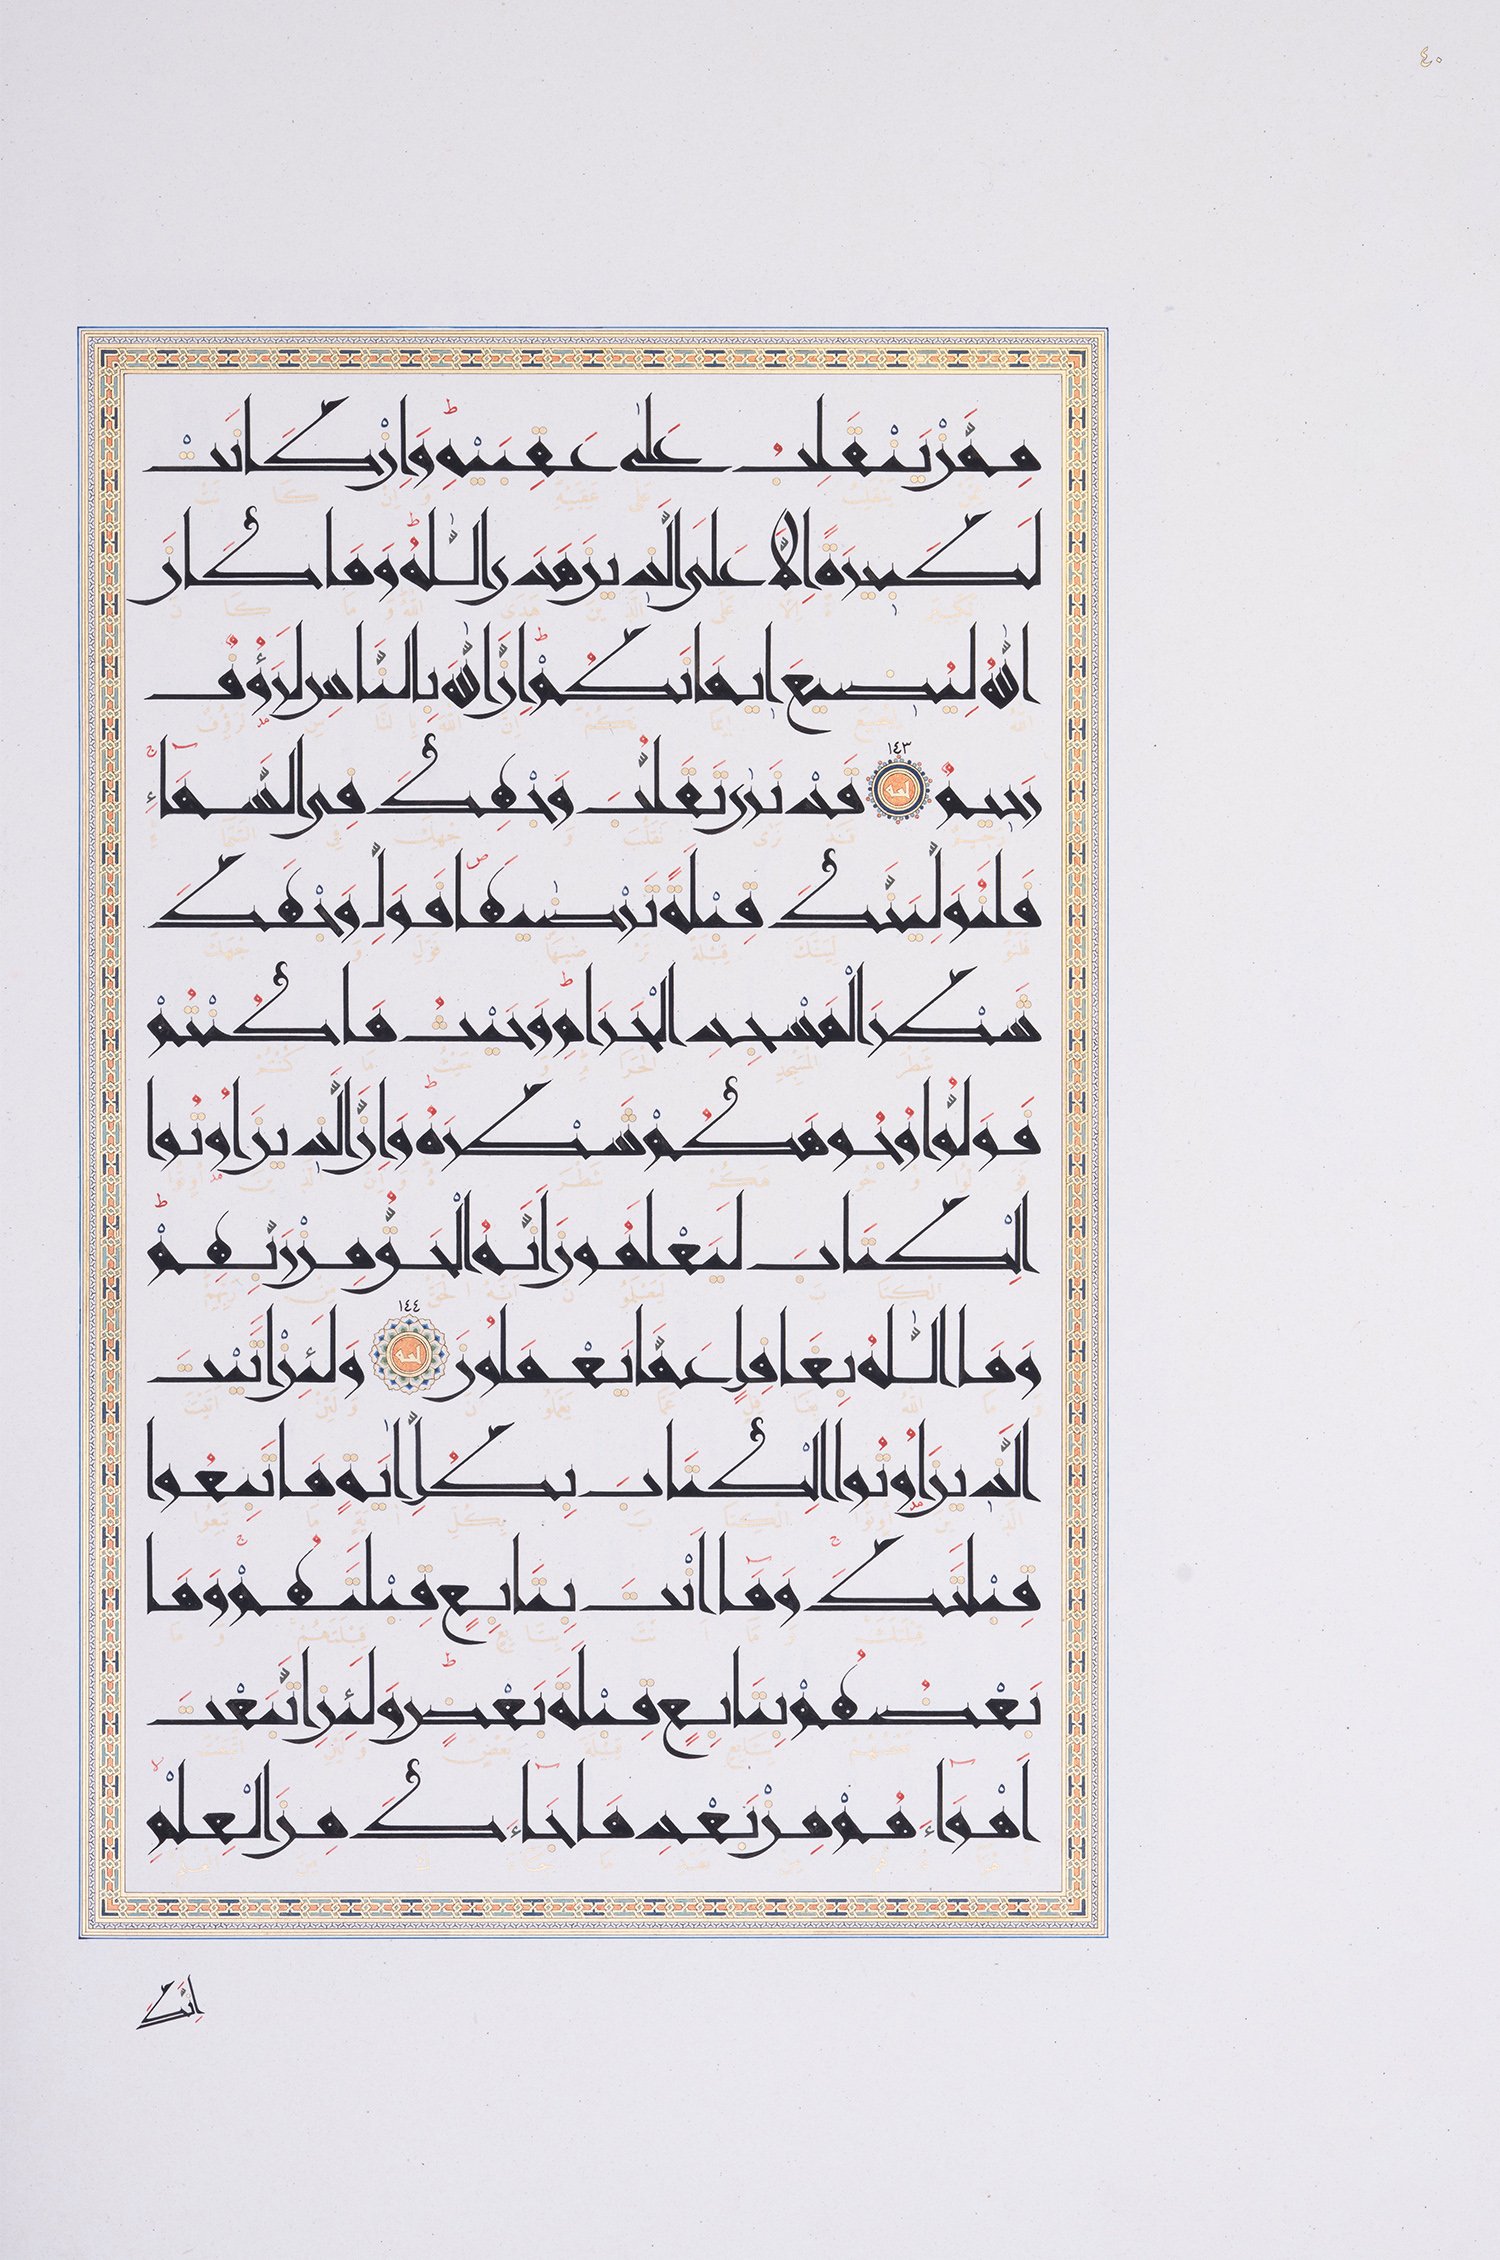 ٤٠
مِمَّنْ يَنْقَلِبُ عَلٰى عَقِبَيْهِ ط وَاِنْ كَانَتْ
لَكَبِيرَةً اِلَّا عَلَى الَّذِينَ هَدَى اللّٰهُ ط وَمَا كَانَ
اللّٰهُ لِيُضِيعَ اِيمَانَكُمْ ط اِنَّ اللّٰهَ بِالنَّاسِ لَرَؤُفٌ
رَحِيمٌ ١٤٣ قَدْ نَرٰى تَقَلُّبَ وَجْهِكَ فِى السَّمَاءِ ج
فَلَنُوَلِّيَنَّكَ قِبْلَةً تَرْضٰيهَا ص فَوَلِّ وَجْهَكَ
شَطْرَ الْمَسْجِدِ الْحَرَامِ ط وَحَيْثُ مَا كُنْتُمْ
فَوَلُّوا وُجُوهَكُمْ شَطْرَهُ ط وَاِنَّ الَّذِينَ اُوتُوا
الْكِتَابَ لَيَعْلَمُونَ اَنَّهُ الْحَقُّ مِنْ رَبِّهِمْ ط
وَمَا اللّٰهُ بِغَافِلٍ عَمَّا يَعْمَلُونَ ١٤٤ وَلَئِنْ اَتَيْتَ
الَّذِينَ اُوتُوا الْكِتَابَ بِكُلِّ اٰيَةٍ مَا تَبِعُوا
قِبْلَتَكَ ج وَمَا اَنْتَ بِتَابِعٍ قِبْلَتَهُمْ ج وَمَا
بَعْضُهُمْ بِتَابِعٍ قِبْلَةَ بَعْضٍ ط وَلَئِنِ اتَّبَعْتَ
اَهْوَاءَهُمْ مِنْ بَعْدِ مَا جَاءَكَ مِنَ الْعِلْمِ لا
اِنَّكَ